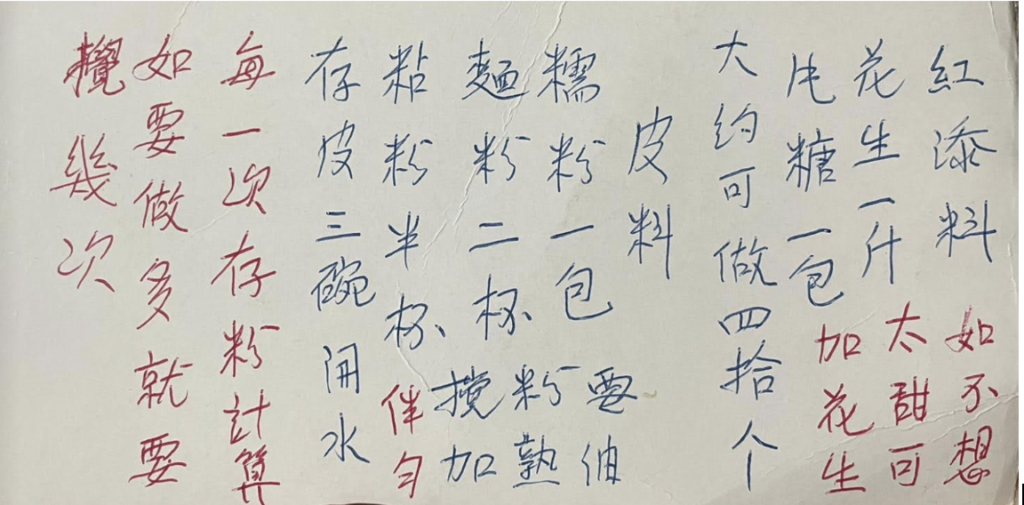 紅添料
花生一斤
片糖一包
如不想
太甜可
加花生
大约可做四拾个
皮料
糯粉一包
麵粉二杯
粘粉半杯、
要油
粉熟
搅加
伴匀
存皮三碗開水
每一次存粉計算
如要做多就要
攪幾次